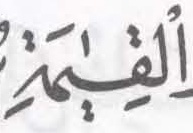 الْقِيٰمَةِ